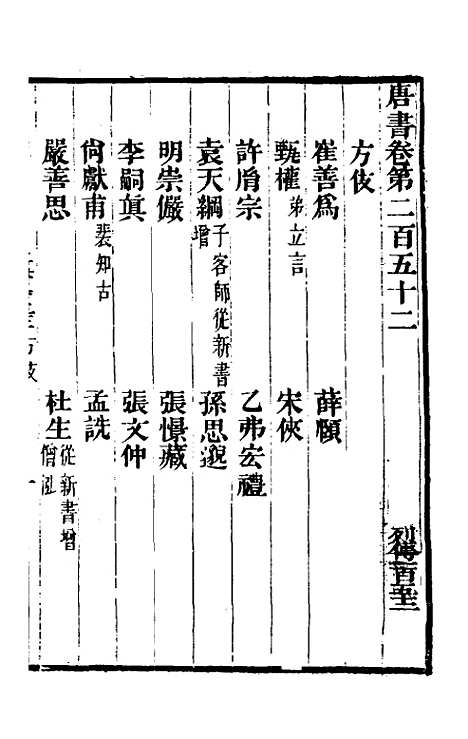 唐書卷第二百五十二
列傳一百
方伎
崔善爲
薛頤
甄權 弟立言
宋俠
許胤宗
乙弗宏禮
袁天綱 子客師從新書增
孫思邈
明崇儼
張憬藏
李嗣眞
張文仲
尙獻甫 裴知古
孟詵
嚴善思
杜生 從新書增 僧泓
方伎
一